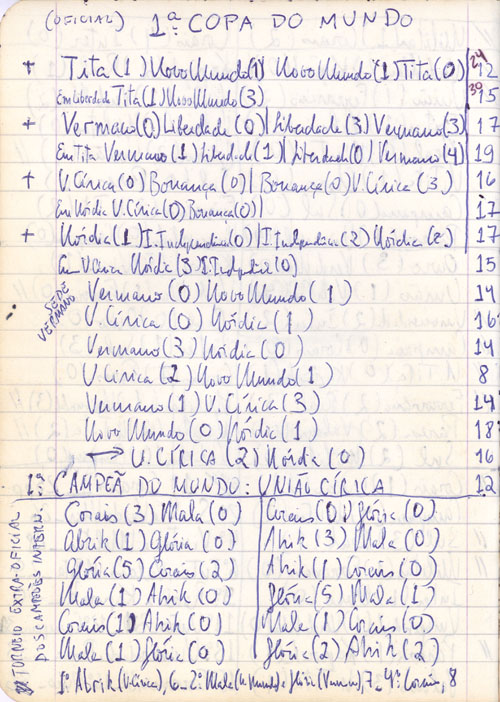 (OFICIAL) 1ª COPA DO MUNDO
+ Tita (1) Novo Mundo (1) Novo Mundo (1) Tita (0) 24 12
Em Liberdade Tita (1) Novo Mundo (3) 30 15
+ Vermano (0) Liberdade (0) | Liberdade (3) Vermano (3) 17
Em Tita Vermano (1) Liberdade (1) | Liberdade (0) Vermano (4) 19
+ U. Círica (0) Bonança (0) | Bonança (0) U. Círica (3) 16
Em Nórdia U. Círica (0) Bonança (0) | 17
+ Nórdia (1) I. Independência (0) | I. Independência (2) Nórdia (2) 17
Em U Círica Nórdia (3) I. (0) 15
SEDE VERMANO
Vermano (0) Novo Mundo (1) 14
U. Círica (0) Nórdia (1) 16
Vermano (3) Nórdia (0) 14
U. Círica (2) Novo Mundo (1) 8
Vermano (1) U. Círica (3) 14
Novo Mundo (0) Nórdia (1) 18
→ U. CÍRICA (2) Nórdia (0) 16
1ª CAMPEÃ DO MUNDO: UNIÃO CÍRICA 12
TURNEIO EXTRA-OFICIAL
DOS CAMPEÕES INTERN.
Corais (3) Mala (0) | Corais (0) Glória (0)
Abrik (1) Glória (0) | Abrik (3) Mala (0)
Glória (5) Corais (2) | Abrik (1) Corais (0)
Mala (1) Abrik (0) | Glória (5) Mala (1)
Corais (1) Abrik (0) | Mala (1) Corais (0)
Mala (1) Glória (0) | Glória (2) Abrik (2)
1º Abrik (U. Círica), 6_2º Mala (N. Mundo) e Glória (Vermano), 7_4º Corais, 8